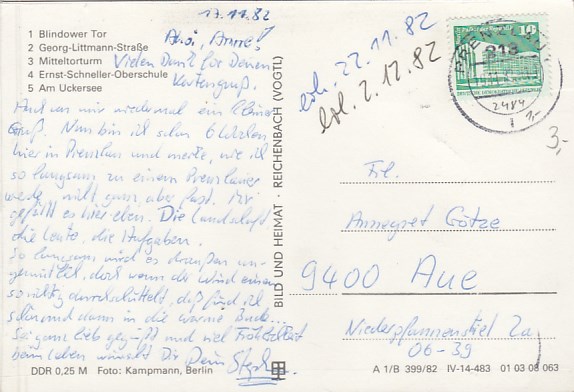 17.11.82
1 Blindower Tor
2 Georg-Littmann-Straße
3 Mitteltorturm
4 Ernst-Schneller-Oberschule
5 Am Uckersee
Ahoi, Anne!
Vielen Dank für Deinen
Kartengruß.
Auch von mir wiedermal ein kleiner
Gruß. Nun bin ich schon 6 Wochen
hier in Prenzlau und merke, wie ich
so langsam zu einem Prenzlauer
werde, nicht ganz aber fast. Mir
gefällt es hier eben. Die Landschaft
die Leute, die Aufgaben.
So langsam wird es draußen un-
gemütlich, doch wenn der Wind einen
so richtig durchschüttelt, daß find ich
schön und dann in die warme Bude...
Sei ganz lieb gegrüßt und viel Fröhlichkeit
beim Leben wünscht Dir Dein Stephan
DDR 0,25 M Foto: Kampmann, Berlin
BILD UND HEIMAT · REICHENBACH (VOGTL)
erh. 22.11.82
bel. 2.12.82
10
2484
1,-
3,-
Frl.
Annegret Götze
9400 Aue
Niederpfannenstiel 2a
06-39
A 1/B 399/82 IV-14-483 01 03 08 063